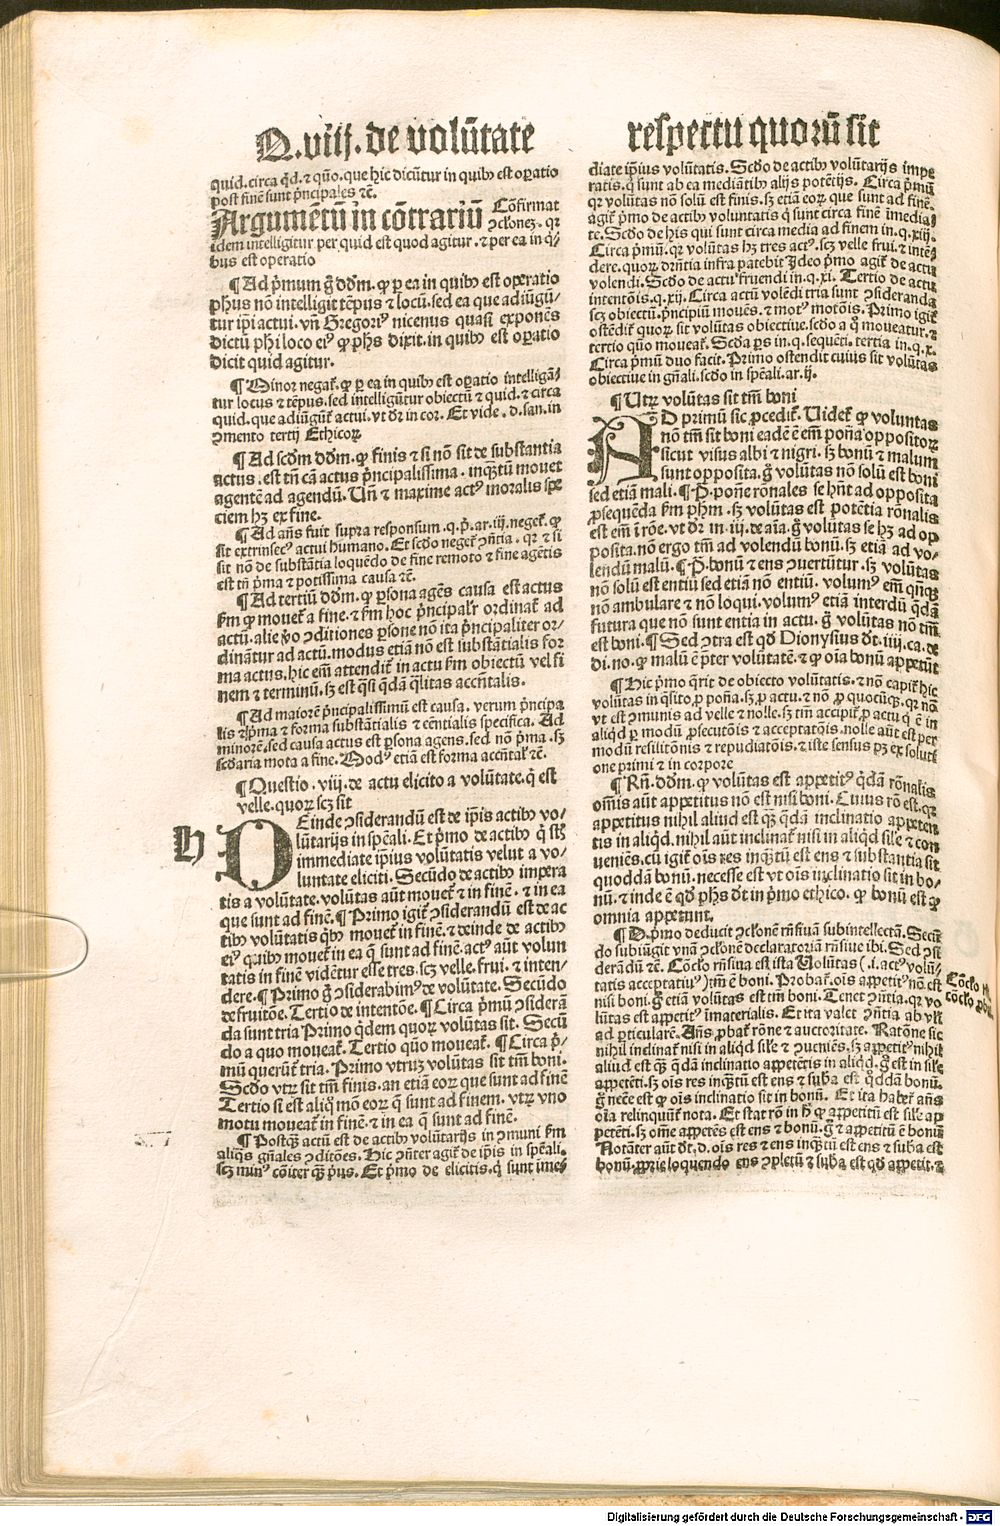 Q. viij. de volūtate
respectu quorū sit
quid. circa qd. ⁊ quō. que hic dicūtur in quibꝰ est oꝑatio
post finē sunt pͥncipales ⁊c̄.
Argumētū in cōtrariū Cōfirmat
ꝯclonez. qꝛ
idem intelligitur per quid est quod agitur. ⁊ per ea in q̄/
bus est operatio
¶ Ad pͥmum g̊ dd̓m. ꝙ ꝑ ea in quibꝰ est operatio
phus nō intelligit tēpus ⁊ locū. sed ea que adiūgū/
tur ip̄i actui. vn̄ Gregoriꝰ nicenus quasi exponēs
dictū phi loco eiꝰ ꝙ phs dixit. in quibꝰ est oꝑatio
dicit quid agitur.
¶ Minor negat̉. ꝙ ꝑ ea in quibꝰ est oꝑatio intelligā/
tur locus ⁊ tēpus. sed intelligūtur obiectū ⁊ quid. ⁊ circa
quid. que adiūgūt̉ actui. vt dr̄ in cor. Et vide. d. san. in
ꝯmento tertij Ethicoꝝ
¶ Ad scd̓m dd̓m. ꝙ finis ⁊ si nō sit de substantia
actus. est tn̄ cā actus pͥncipalissima. inqͣtū mouet
agentē ad agendū. Un̄ ⁊ maxime actꝰ moralis spe
ciem hꝫ ex fine.
¶ Ad an̄s fuit supra responsum. q. pͥ. ar. iij. neget̉. ꝙ
sit extrinsecꝰ actui humano. Et scd̓o neget̉ ꝯn̄tia. qꝛ ⁊ si
sit nō de substātia loquēdo de fine remoto ⁊ fine agētis
est tn̄ pͥma ⁊ potissima causa ⁊c̄.
¶ Ad tertiū dd̓m. ꝙ ꝑsona agēs causa est actus
ẜm ꝙ mouet̉ a fine. ⁊ ẜm hoc pͥncipalr̄ ordinat̉ ad
actū. alie v̊o ꝯditiones ꝑsone nō ita pͥncipaliter or/
dināt̉ur ad actū. modus etiā nō est substātialis for
ma actus. hic em̄ attendit̉ in actu ẜm obiectū vel fi
nem ⁊ terminū. sꝫ est qͣsi qͥdā qͣlitas accn̄talis.
¶ Ad maiorē pͥncipalissimū est causa. verum pͥncipa
lis ⁊ pͥma ⁊ forma substātialis ⁊ cēntialis specifica. Ad
minorē. sed causa actus est ꝑsona agens. sed nō pͥma. sꝫ
scd̓aria mota a fine. Modꝰ etiam est forma accn̄tal̓ ⁊c̄.
¶ Questio. viij. de actu elicito a volūtate. q̄ est
velle. quoꝝ scꝫ sit
H
DEinde ꝯsiderandū est de ip̄is actibꝰ vo/
lūtarijs in sp̄eali. Et pͥmo de actibꝰ q̄ sūt
immediate ip̄ius volūtatis velut a vo/
luntate eliciti. Secūdo de actibꝰ impera
tis a volūtate. volūtas aūt mouet̉ ⁊ in finē. ⁊ in ea
que sunt ad finē. ¶ Primo igit̉ ꝯsiderandū est de ac
tibꝰ volūtatis qͥbꝰ mouet̉ in finē. ⁊ deinde de actibꝰ
eiꝰ quibꝰ mouet̉ in ea q̄ sunt ad finē. actꝰ aūt volun
tatis in finē vidētur esse tres. scꝫ velle. frui. ⁊ inten/
dere. ¶ Primo g̊ ꝯsiderabimꝰ de volūtate. Secūdo
de fruitōe. Tertio de intentōe. ¶ Circa pͥmū ꝯsiderā
da sunt tria Primo qͥdem quoꝝ volūtas sit. Secū
do a quo moueat̉. Tertio quō moueat̉. ¶ Circa pͥ/
mū querūt̉ tria. Primo vtꝝ volūtas sit tm̄ boni.
Scd̓o vtꝝ sit tm̄ finis. an etiā eoꝝ que sunt ad finē
Tertio si est aliqͦ mō eoꝝ q̄ sunt ad finem. vtꝝ vno
motu moueat̉ in finē. ⁊ in ea q̄ sunt ad finē.
¶ Postqͣ actū est de actibꝰ volūtarijs in ꝯmuni ẜm
aliqͣs gn̄ales ꝯditōes. Hic ꝯn̄ter agit̉ de ip̄is in sp̄eali.
scꝫ minꝰ cōiter qͣꝫ pͥus. Et pͥmo de elicitis. q̄ sunt īme/
diate ip̄ius volūtatis. Scd̓o de actibꝰ volūtarijs impe
ratis. q̄ sunt ab ea mediātibꝰ alijs potētijs. Circa pͥmū
qꝛ volūtas nō solū est finis. sꝫ etiā eoꝝ que sunt ad finē.
agit̉ pͥmo de actibꝰ voluntatis q̄ sunt circa finē imedia/
te. Scd̓o de his qui sunt circa media ad finem in. q. xiij.
Circa pͥmū. qꝛ volūtas hꝫ tres actꝰ. scꝫ velle frui. ⁊ intē/
dere. quoꝝ drn̄tia infra patebit Ideo pͥmo agit̉ de actu
volendi. Scd̓o de actu fruendi in. q. xi. Tertio de actu
intentōis. q. xij. Circa actū volēdi tria sunt ꝯsideranda
scꝫ obiectū. pͥncipiū mouēs. ⁊ motꝰ motōis. Primo igit̉
ostēdit̉ quoꝝ sit volūtas obiectiue. scd̓o a qͦ moueatur. ⁊
tertio quō moueat̉. Scd̓a ꝑs in. q. sequēti. tertia in. q. x.
Circa pͥmū duo facit. Primo ostendit cuius sit volūtas
obiectiue in gn̄ali. scd̓o in sp̄eali. ar. ij.
¶ Utꝝ volūtas sit tm̄ boni
AD primū sic ꝓcedit̉. Uidet̉ ꝙ voluntas
nō tm̄ sit boni eadē ē em̄ poñ̄a oppositoꝝ
sicut visus albi ⁊ nigri. sꝫ bonū ⁊ malum
sunt opposita. g̊ volūtas nō solū est boni
sed etiā mali. ¶ P̄. pon̄e rōnales se hn̄t ad opposita
ꝓsequēda ẜm phm. sꝫ volūtas est potētia rōnalis
est em̄ ī rōe. vt dr̄ in. iij. de aīa. g̊ volūtas se hꝫ ad op
posita. nō ergo tm̄ ad volendū bonū. sꝫ etiā ad vo/
lendū malū. ¶ P̄. bonū ⁊ ens ꝯuertūtur. sꝫ volūtas
nō solū est entiū sed etiā nō entiū. volumꝰ em̄ qn̄qꝫ
nō ambulare ⁊ nō loqui. volumꝰ etiā interdū qͥdā
futura que nō sunt entia in actu. g̊ volūtas nō tm̄
est boni. ¶ Sed ꝯtra est qd̓ Dionysius dt̄. iiij. ca. de
di. no. ꝙ malū ē pter volūtatē. ⁊ ꝙ oīa bonū appetūt
¶ Hic pͥmo qͥrit de obiecto volūtatis. ⁊ nō capit̉ hic
volūtas in qͣsito. ꝓ poñ̄a. sꝫ ꝓ actu. ⁊ nō ꝓ quocūqꝫ. qꝛ nō
vt est ꝯmunis ad velle ⁊ nolle. sꝫ tm̄ accipit̉ ꝓ actu q̄ ē in
aliqͩ ꝑ modū ꝓsecutōis ⁊ acceptatōis. nolle aūt est per
modū resilitōis ⁊ repudiatōis. ⁊ iste sensus pꝫ ex solutt
one primi ⁊ in corpore
¶ Rn̄. dd̓m. ꝙ voluntas est appetitꝰ qͥdā rōnalis
om̄is aūt appetitus nō est nisi boni. Cuius rō est. qꝛ
appetitus nihil aliud est qͣꝫ qͥdā inclinatio appeten
tis in aliqͩ. nihil aūt inclinat̉ nisi in aliqͩ sil̓e ⁊ con
ueniēs. cū igit̉ ois res inqͣtū est ens ⁊ substantia sit
quoddā bonū. necesse est vt ois inclinatio sit in bo/
nū. ⁊ inde ē qd̓ phs dt̄ in pͥmo ethico. ꝙ bonū est qd̓
omnia appetunt.
¶ D. pͥmo deducit ꝯclonē rn̄siuā subintellectā. Secū
do subiūgit vnā ꝯclonē declaratoriā rn̄siue ibi. Sed ꝯsi
derādū ⁊c̄. Cōclo rn̄siua est ista Uolūtas (.i. actꝰ volū/
tatis acceptatiuꝰ) tm̄ ē boni. Probat̉. ois appetitꝰ nō est
nisi boni. g̊ etiā volūtas est tm̄ boni. Tenet ꝯn̄tia. qꝛ vo
lūtas est appetitꝰ īmaterialis. Et ita valet ꝯn̄tia ab vl̓i
ad ꝑticularē. An̄s ꝓbat̉ rōne ⁊ auctoritate. Ratōne sic
nihil inclinat̉ nisi in aliqͩ sil̓e ⁊ ꝯueniēs. sꝫ appetitꝰ nihil
aliud est qͣꝫ qͥdā inclinatio appetētis in aliqͩ. g̊ est in sil̓e
appetēti. sꝫ ois res inqͣtū est ens ⁊ suba est qͦddā bonū.
g̊ necē̄ est ꝙ ois inclinatio sit in bonū. Et ita habet̉ an̄s
oīa relinquūt̉ nota. Et stat rō in h̊ ꝙ appetitū est sil̓e ap
petēti. sꝫ om̄e appetēs est ens ⁊ bonū. g̊ ⁊ appetitū ē bonū
Notāter aūt dt̄. d. ois res ⁊ ens inqͣtū est ens ⁊ suba est
bonū. ꝓprie loquendo ens ꝯpletū ⁊ suba est qd̓ appetit. ⁊
Cōclo rn̄
cōclo ꝓba
Digitalisierung gefördert durch die Deutsche Forschungsgemeinschaft - DFG